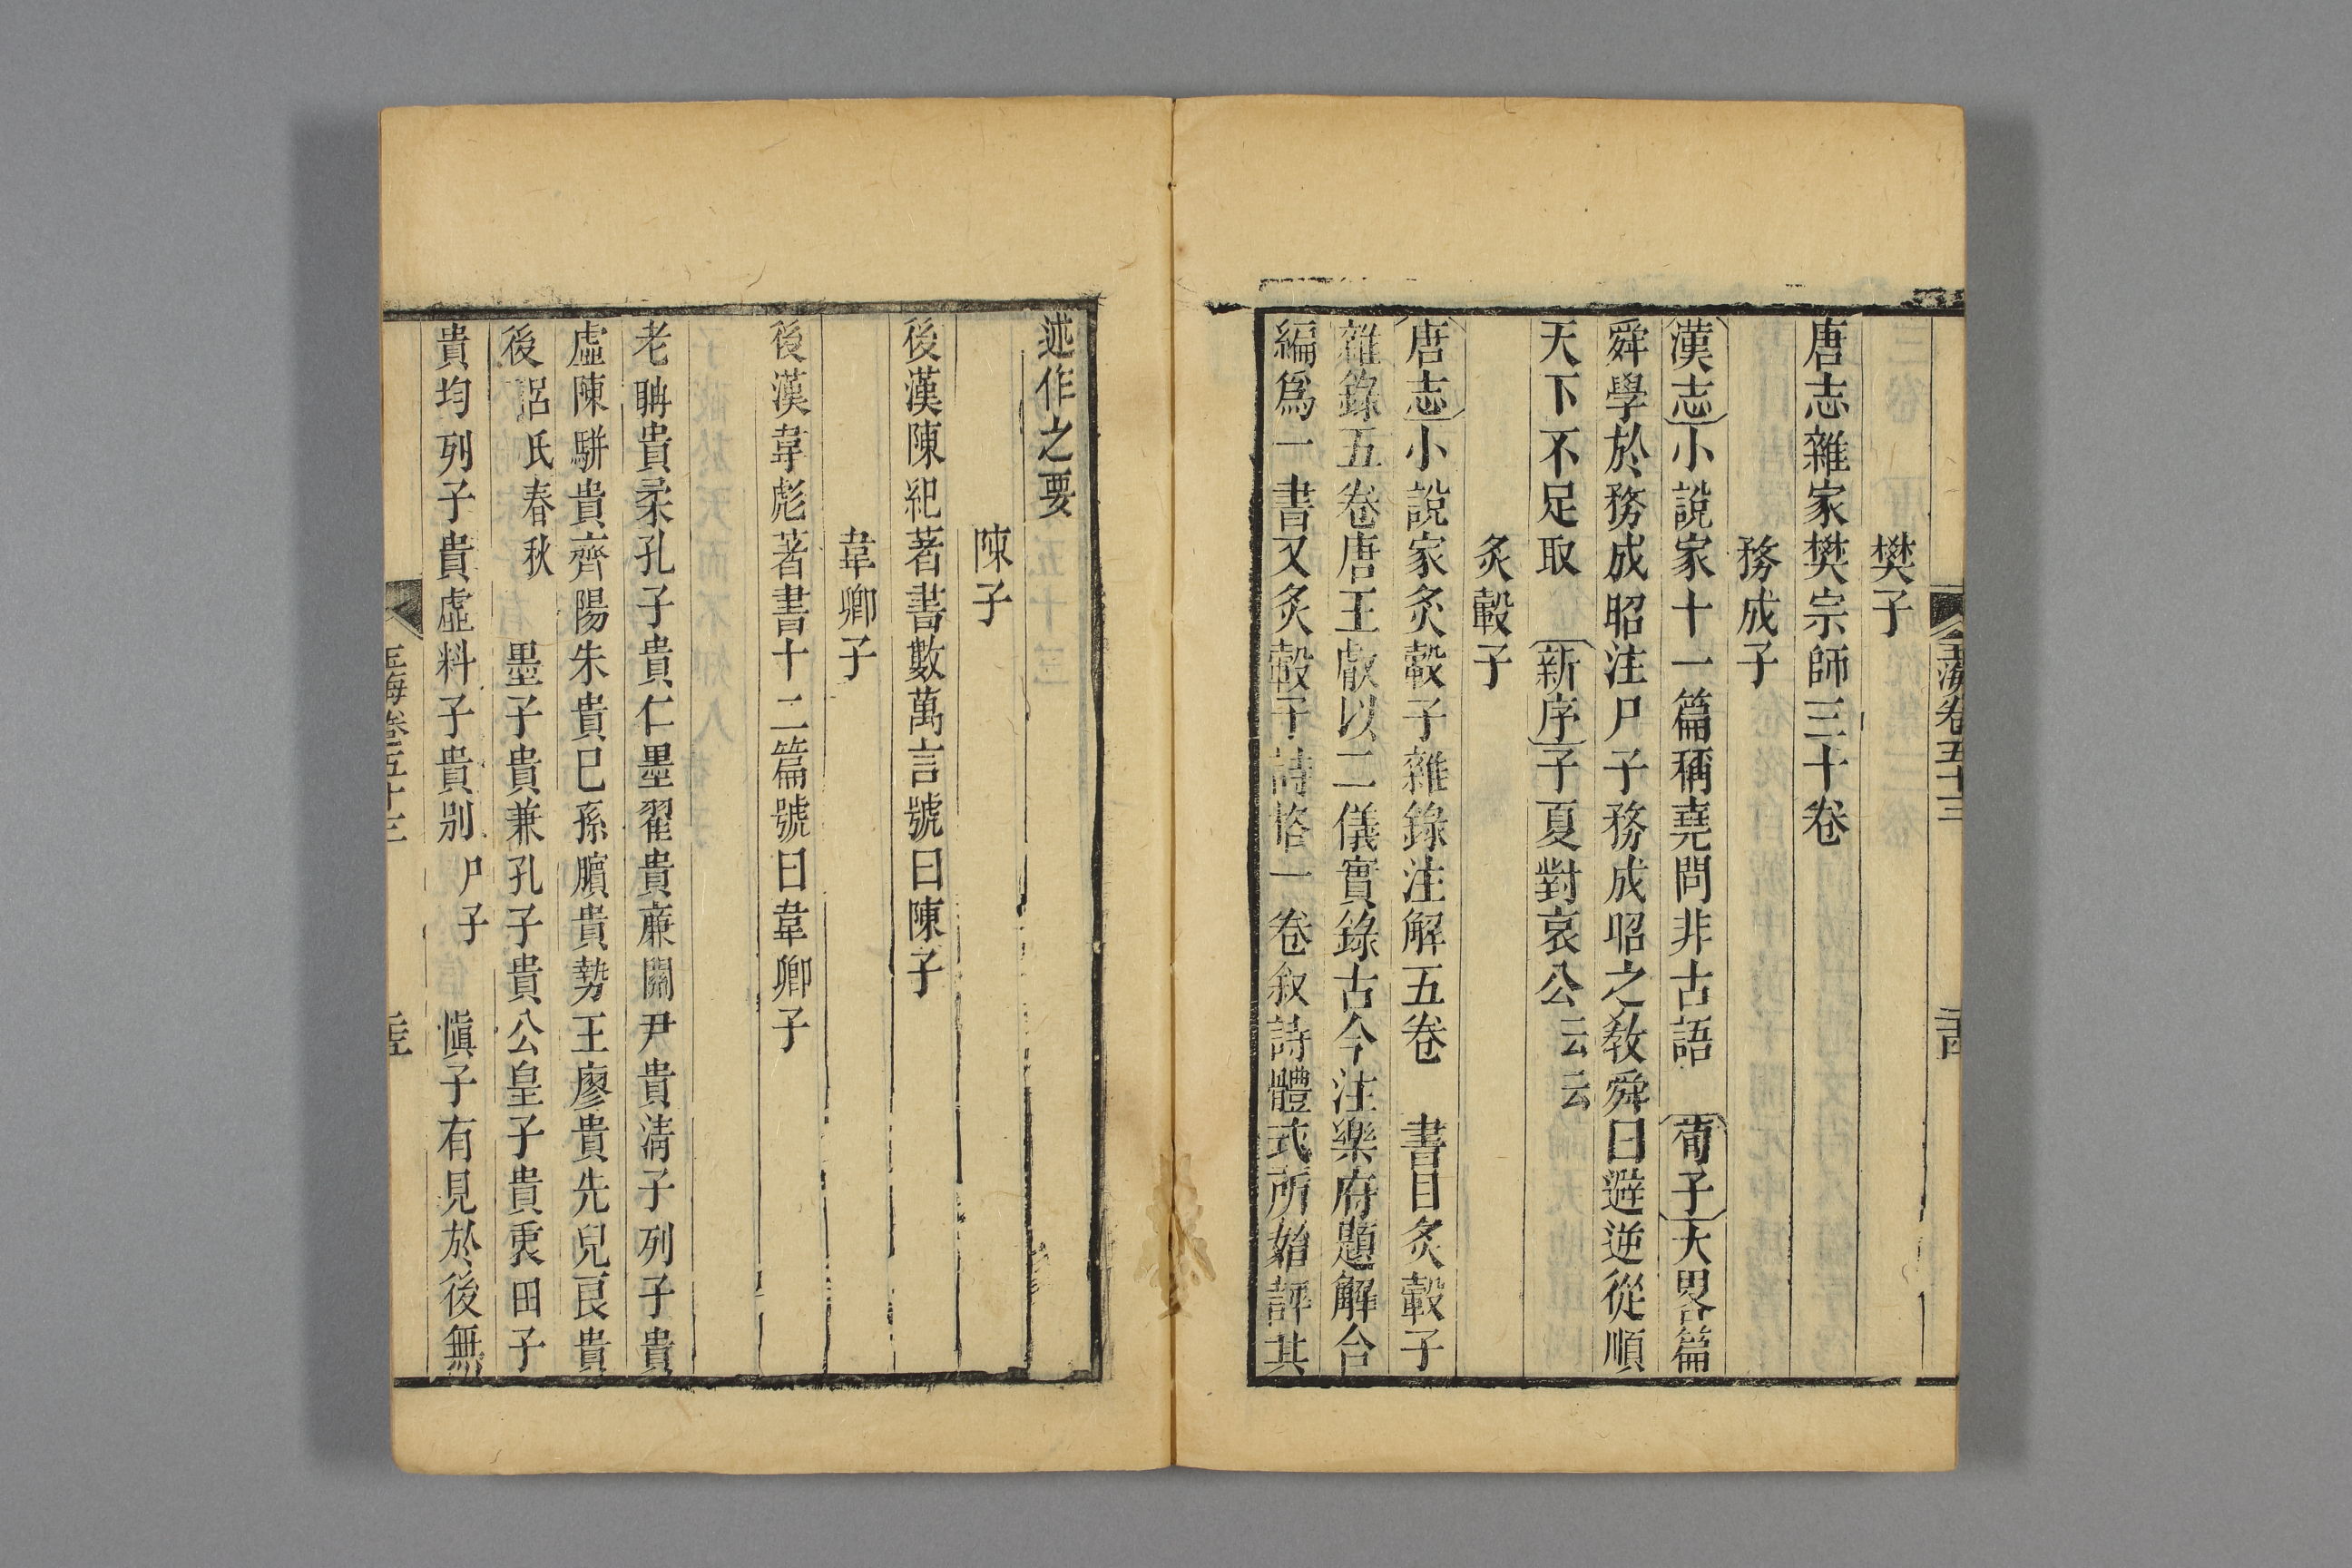 玉海卷五十三
樊子
唐志雜家樊宗師三十卷
務成子
漢志小說家十一篇稱堯問非古語 荀子大畧篇
舜學於務成昭注尸子務成昭之教舜曰避逆從順
天下不足取 新序子夏對哀公云云
炙轂子
唐志小說家炙轂子雜錄注解五卷 書目炙轂子
雜錄五卷唐王叡以二儀實錄古今注樂府題解合
編爲一書又炙轂子詩格一卷叙詩體式所始評其
述作之要
陳子
後漢陳紀著書數萬言號曰陳子
韋卿子
後漢韋彪著書十二篇號曰韋卿子
老聃貴柔孔子貴仁墨翟貴廉關尹貴清子列子貴
虛陳駢貴齊陽朱貴已孫臏貴勢王廖貴先兒良貴
後呂氏春秋 墨子貴兼孔子貴公皇子貴衷田子
貴均列子貴虛料子貴別尸子 慎子有見於後無
玉海卷五十三